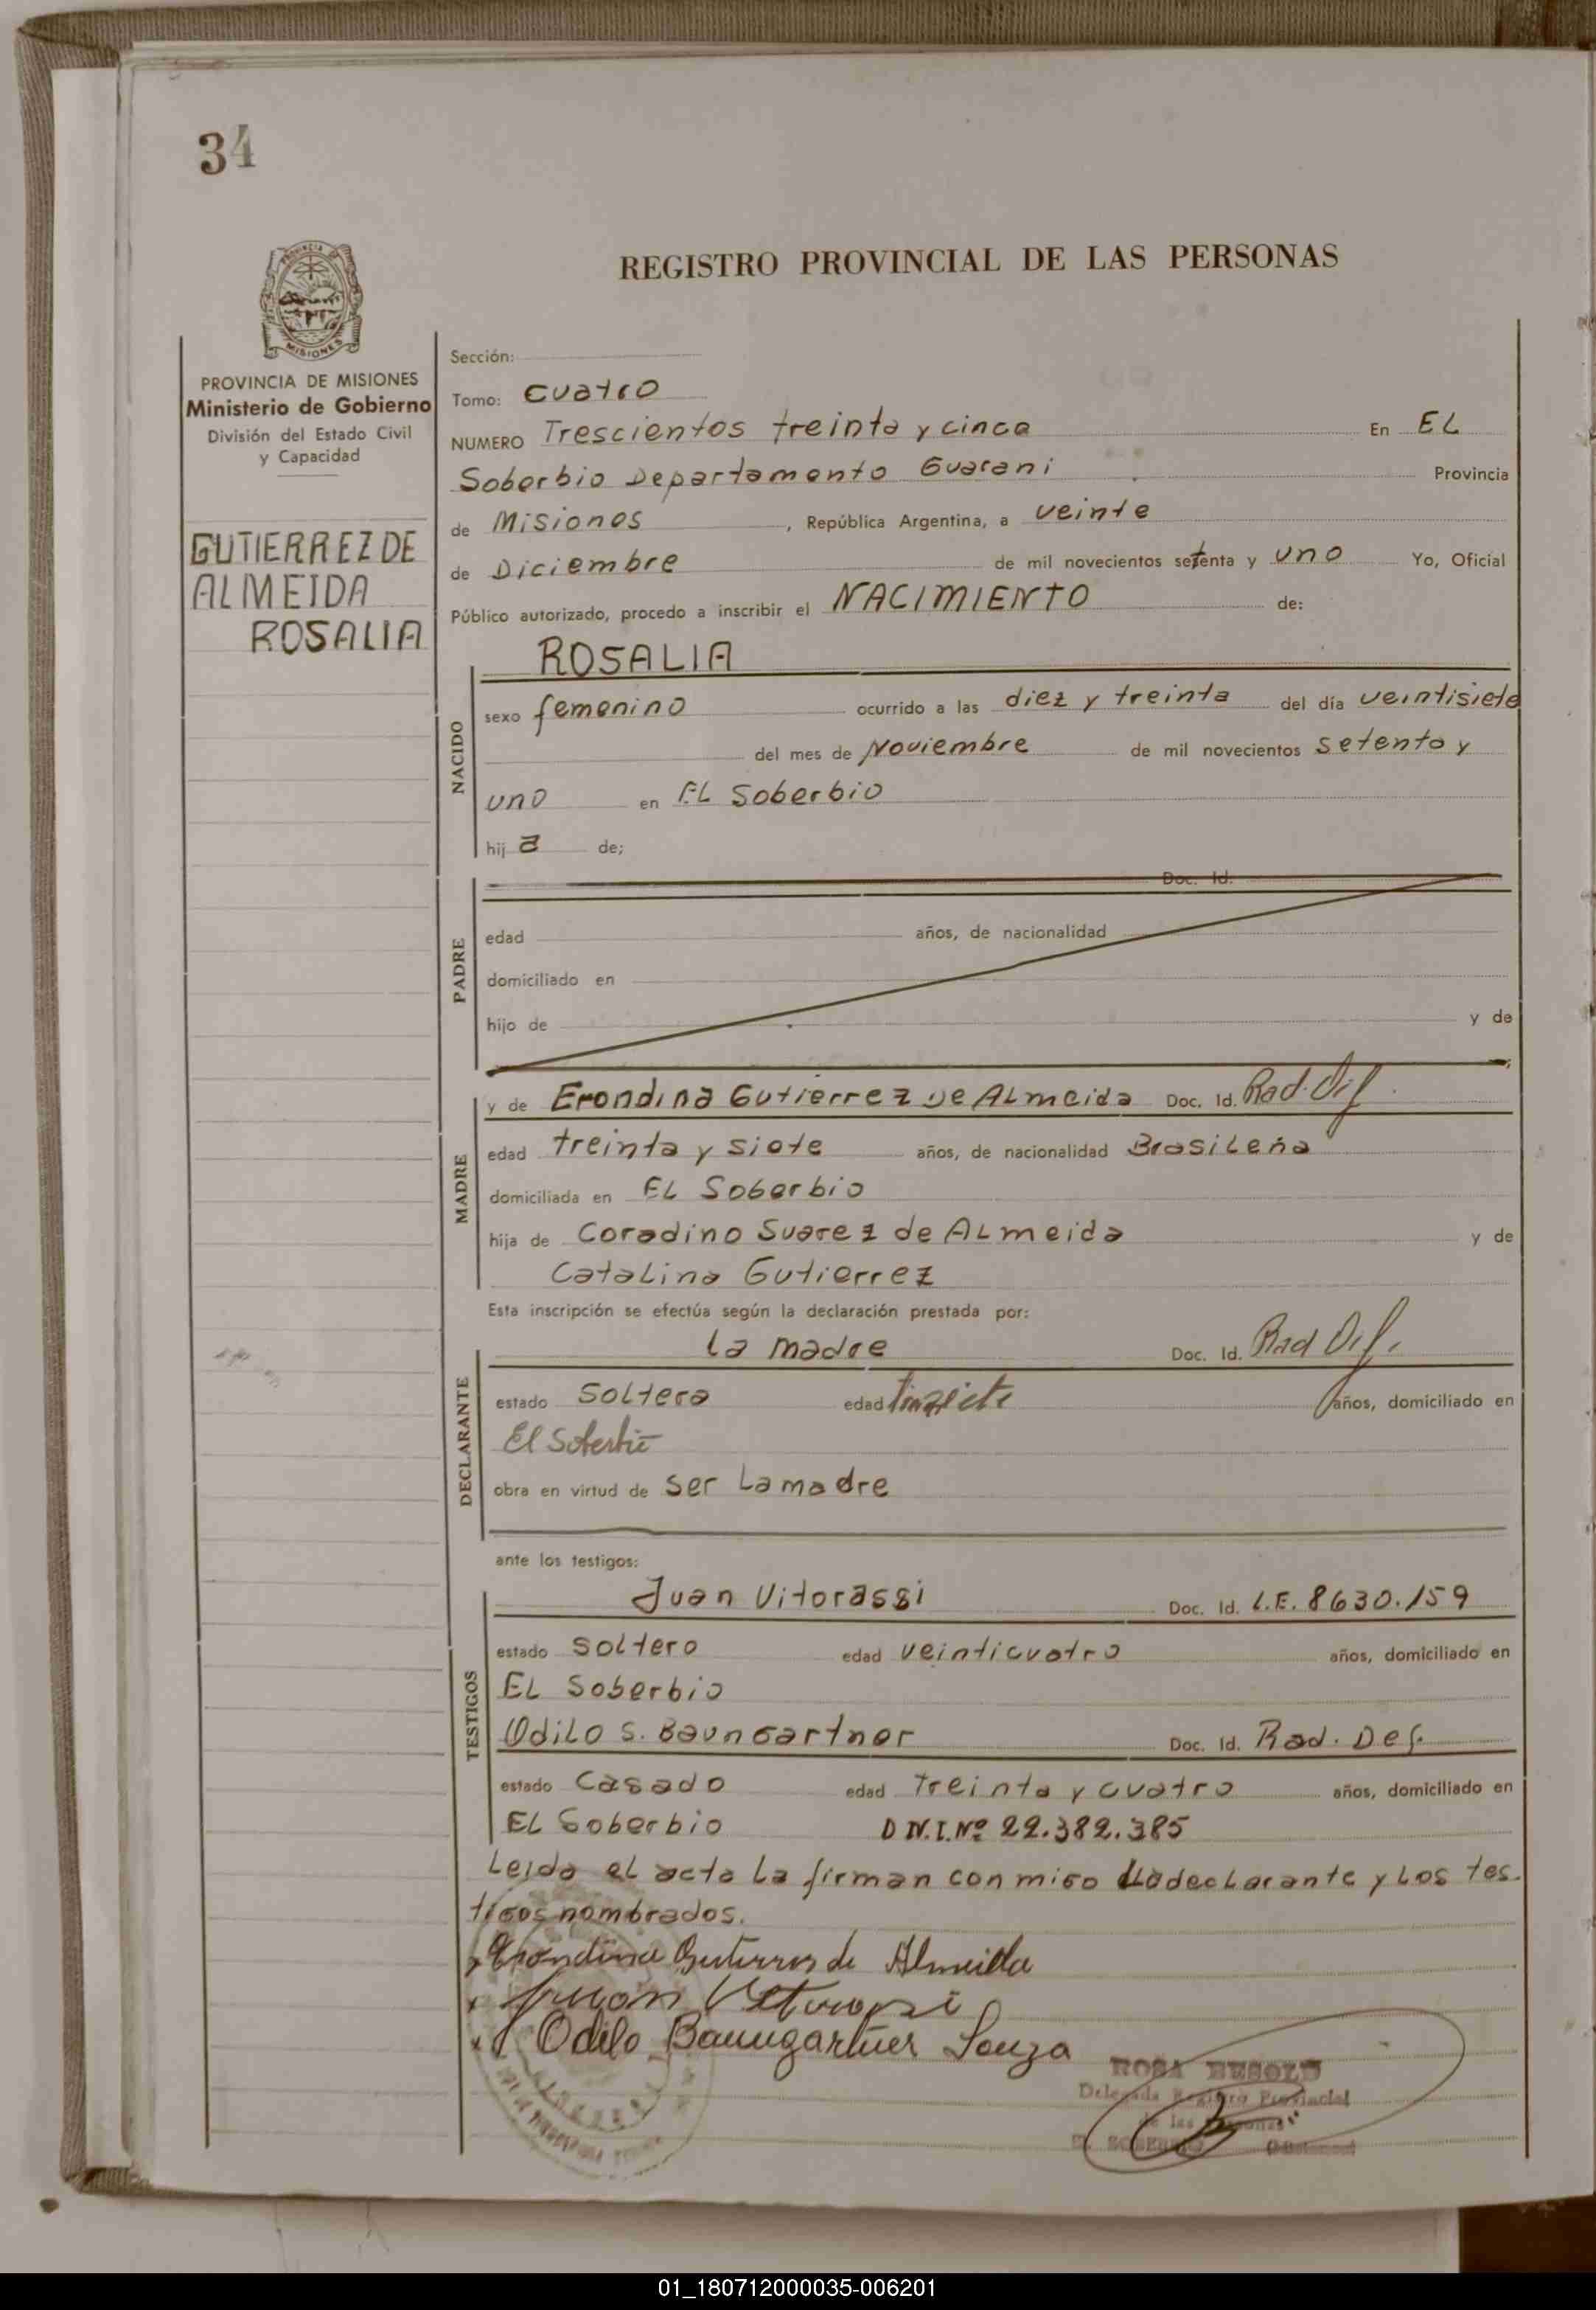 34
REGISTRO PROVINCIAL DE LAS PERSONAS
PROVINCIA DE MISIONES
Ministerio de Gobierno
División del Estado Civil
y Capacidad
GUTIERREZ DE
ALMEIDA
ROSALIA
Sección:
Tomo: cuatro
NUMERO Trescientos treinta y cinco En EL
Soberbio Departamento Guarani Provincia
de Misiones, República Argentina, a veinte
de Diciembre de mil novecientos setenta y uno Yo, Oficial
Público autorizado, procedo a inscribir el NACIMIENTO de:
ROSALIA
NACIDO
sexo femenino ocurrido a las diez y treinta del día veintisiete
del mes de Noviembre de mil novecientos setenta y
uno en EL Soberbio
hij a de;
PADRE
Doc. Id.
edad años, de nacionalidad
domiciliado en
hijo de y de
MADRE
y de Erondina Gutierrez De ALmeida Doc. Id. Rad.
edad treinta y siete años, de nacionalidad Brasileña
domiciliada en EL Soberbio
hija de Coradino Suarez de ALmeida y de
Catalina Gutierrez
Esta inscripción se efectúa según la declaración prestada por:
DECLARANTE
La madre Doc. Id. Rad
estado Soltera edad años, domiciliado en
El Soberbio
obra en virtud de ser La madre
ante los testigos:
TESTIGOS
Juan Vitorassi Doc. Id. L.E. 8630.159
estado soltero edad veinticuatro años, domiciliado en
EL Soberbio
Odilo S. Baungartner Doc. Id. Rad. Def.
estado Casado edad treinta y cuatro años, domiciliado en
EL Soberbio D.N.I. Nº 22.382.385
Leida el acta la firman conmigo La declarante y Los tes-
tigos nombrados.
Erondina Gutierres de Almeida
Juan
Odilo Baumgartner Souza
ROSA BESOLD
Delegada Registro Provincial
de las Personas
EL SOBERBIO (Misiones)
01_180712000035-006201